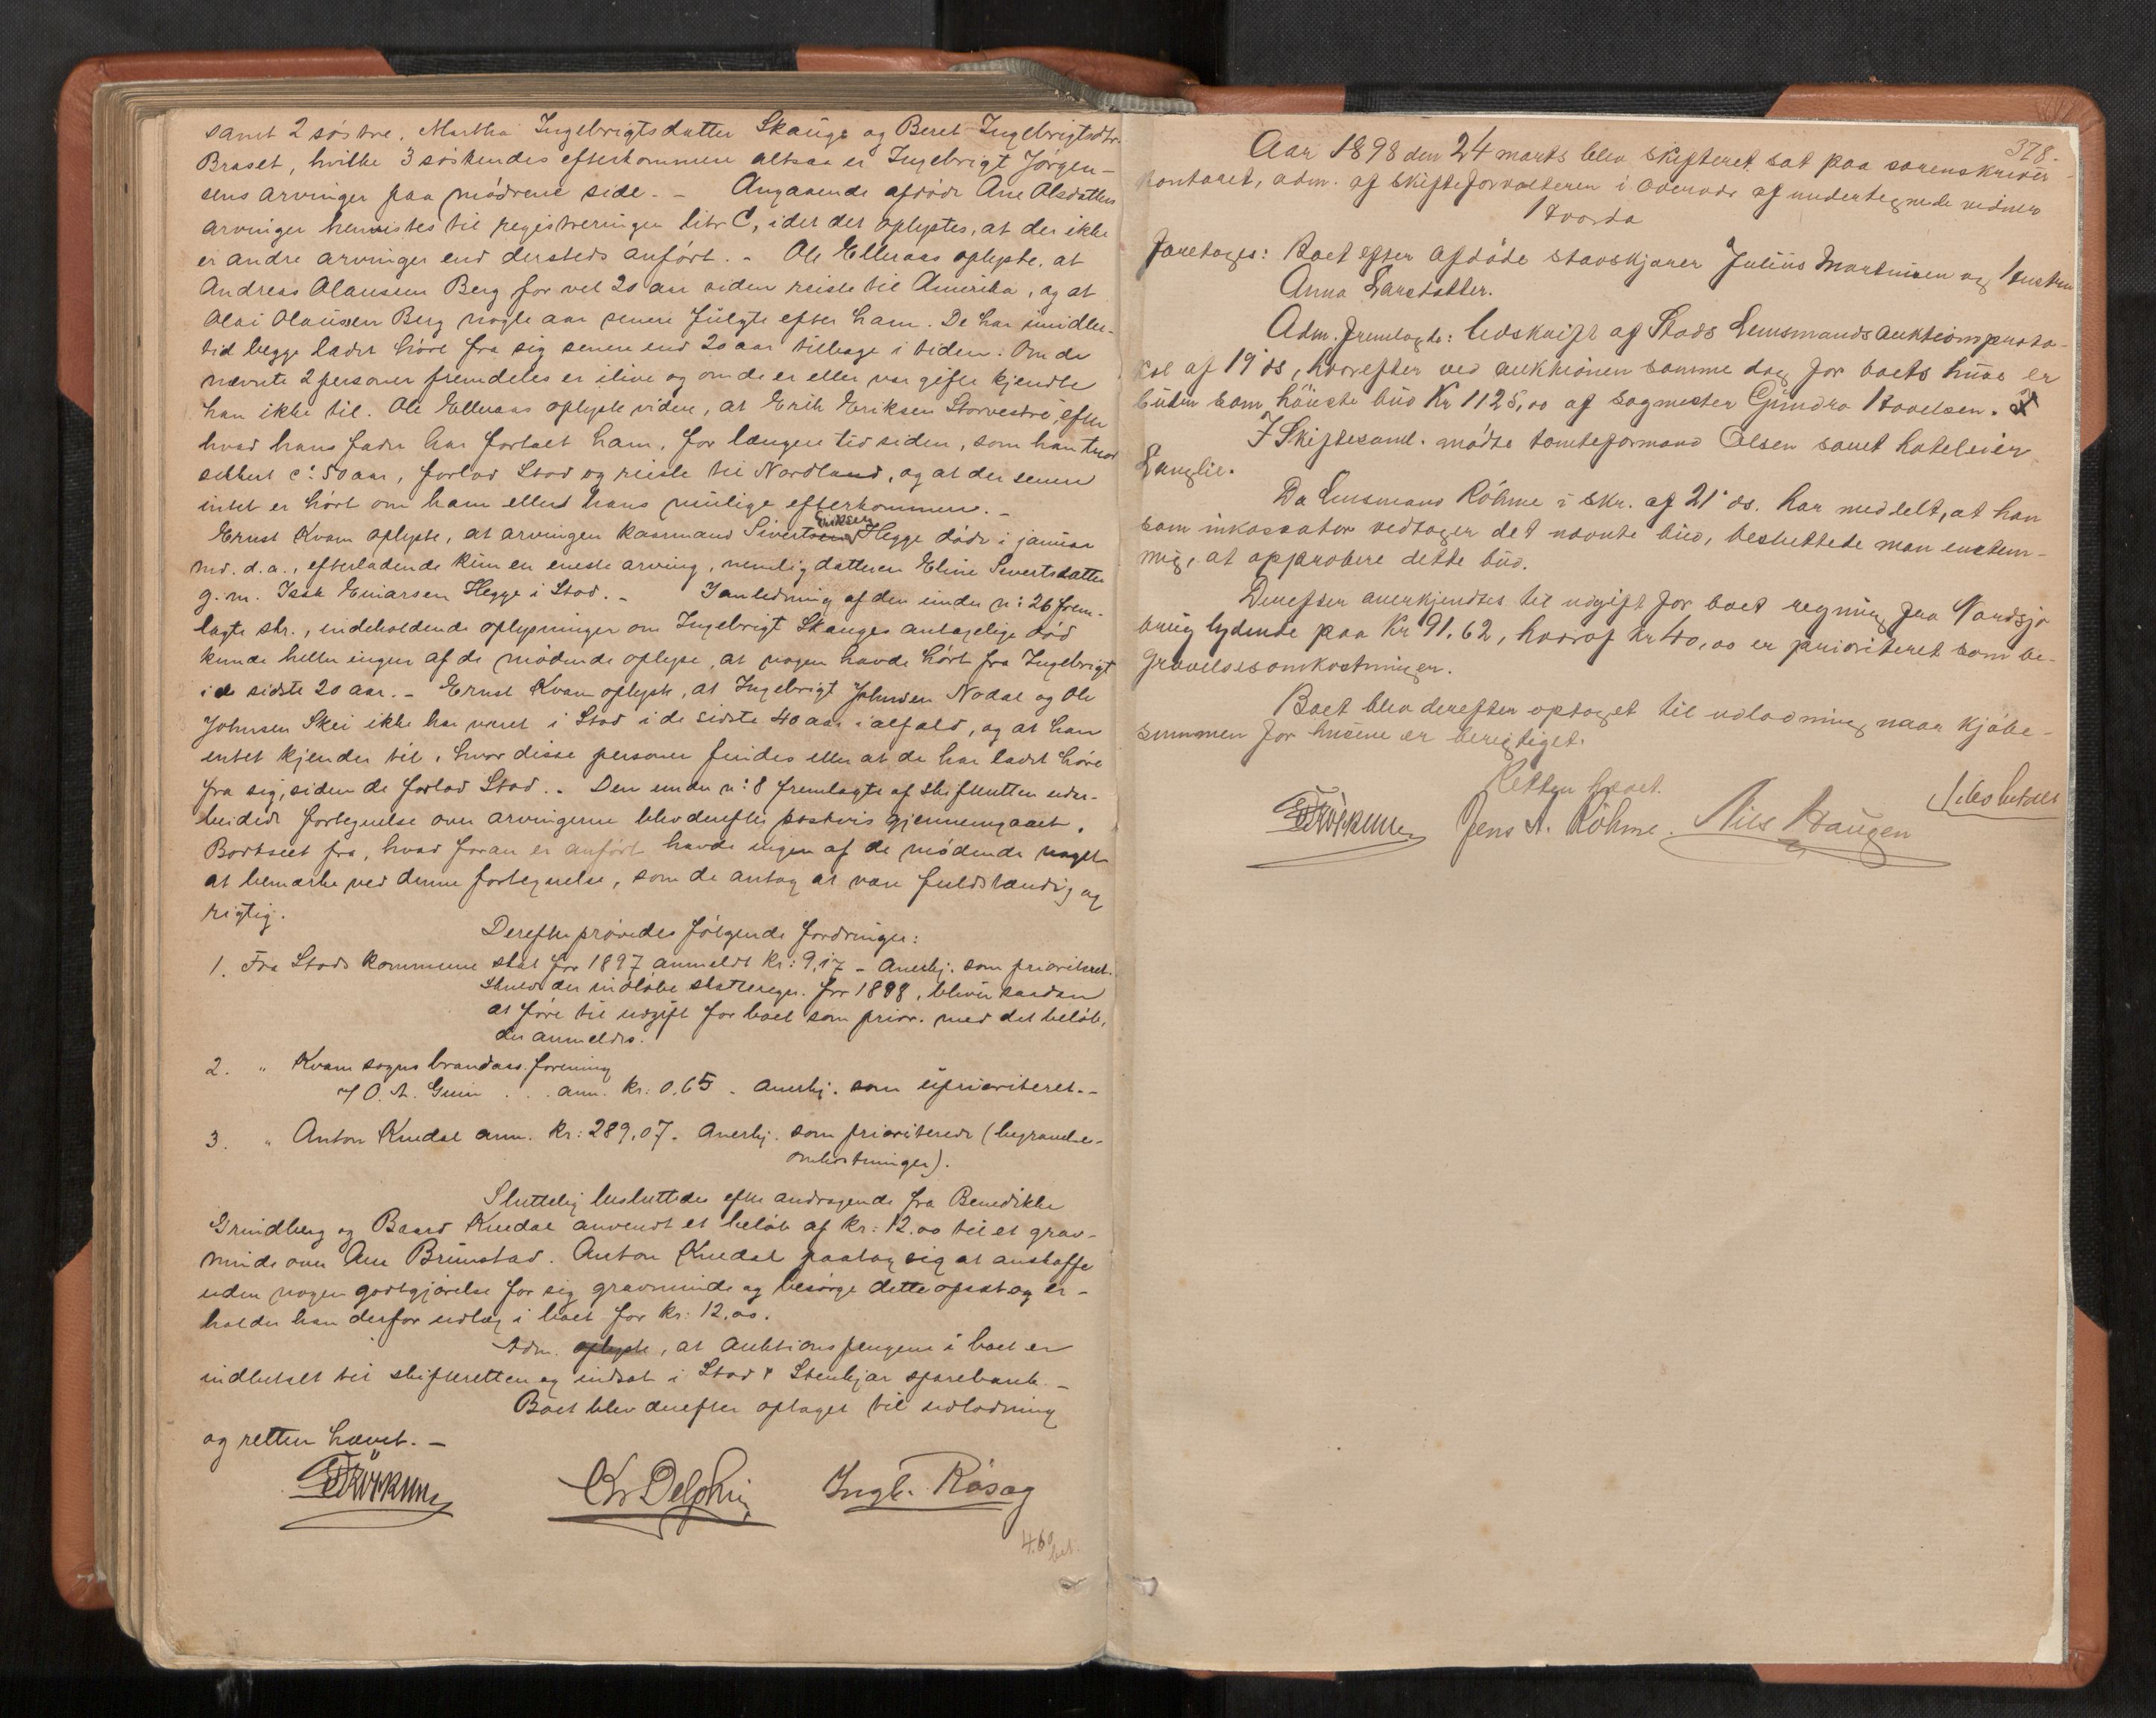 samt 2 søstre, Martha Ingebrigtsdatter Skauge og Beret Ingebrigtsdtr.
Braset, hvilke 3 søskendes efterkommere altsaa er Ingebrigt Jørgen-
sens arvinger paa mødrene side. - Angaaende afdøde Ane Olsdatters
arvinger henvistes til registreringen litr C, idet det oplystes, at der ikke
er andre arvinger end dersteds anført. - Ole Elleraas oplyste, at
Andreas Olausen Berg for vel 20 aar siden reiste til Amerika, og at
Olai Olausen Berg nogle aar senere fulgte efter ham. De har imidler-
tid begge ladet høre fra sig senere end 20 aar tilbage i tiden. Om de
nævnte 2 personer fremdeles er ilive og om de er eller var gifte kjendte
han ikke til. Ole Elleraas oplyste videre, at Erik Eriksen Storvestre, efter
hvad hans fader har fortalt ham, for længere tid siden, som han tror
sikkert c: 50 aar, forlod Stod og reiste til Nordland, og at der senere
intet er hørt om ham eller hans mulige efterkommere. -
Ernst Kvam oplyste, at arvingen kaarmand Sivert Eriksen Hegge døde i januar
md. d.a., efterladende kun en eneste arving, nemlig datteren Eline Sivertsdatter
g. m. Isak Einarsen Hegge i Stod. - I anledning af den under n: 26 frem-
lagte skr., indeholdende oplysninger om Ingebrigt Skauges antagelige død
kunde heller ingen af de mødende oplyse, at nogen havde hørt fra Ingebrigt
i de sidste 20 aar. - Ernst Kvam oplyste, at Ingebrigt Johnsen Nodal og Ole
Johnsen Skei ikke har været i Stod i de sidste 40 aar ialfald, og at han
intet kjender til, hvor disse personer findes eller at de har ladet høre
fra sig, siden de forlod Stod. - Den under n: 8 fremlagte af skifteretten udar-
beidede fortegnelse over arvingerne blev derefter postvis gjennemgaaet.
Bortseet fra, hvad foran er anført havde ingen af de mødende noget
at bemærke ved denne fortegnelse, som de antog at være fuldstændig og
rigtig.
Derefter prøvedes følgende fordringer:
1. Fra Stods kommune skat for 1897 anmeldt kr: 9,17 - Anerkj. som prioriteret.
Skulde der indløbe skatteregn. for 1898, bliver saadan
at føre til udgift for boet som prior. med det beløb,
der anmeldes.
2. " Kvam sogns brandass. forening
v/ O. A. Guin . . . anm. kr: 0,65 - Anerkj. som uprioriteret. -
3. " Anton Kvedal anm. kr: 289,07. Anerkj. som prioriterede (begravelses-
omkostninger).
Sluttelig besluttedes efter andragende fra Benedikte
Grindberg og Baard Kvedal anvendt et beløb af kr: 12.00 til et grav-
minde over Ane Brunstad. Anton Kvedal paatog sig at anskaffe
uden nogen godtgjørelse for sig gravminde og besørge dette opsat og er-
holder han derfor udlæg i boet for kr: 12,00.
Adm. oplyste, at auktionspengene i boet er
indbetalt til skifteretten og indsat i Stod & Stenkjær sparebank. -
Boet blev derefter optaget til udlodning
og retten hævet. -
Chr Delphin Ingb. Røsag
4.60 bet.
378.
Aar 1898 den 24 marts blev skifteret sat paa sorenskriver-
kontoret, adm. af skifteforvalteren i overvær af undertegnede vidner
Hvorda
Foretoges: Boet efter afdøde stavskjærer Julius Martinsen og hustru
Anna Larsdatter.
Adm. fremlagte: Udskrift af Stods Lensmands auktionsproto-
kol af 19 ds, hvorefter ved auktionen samme dag for boets huse er
buden som høieste bud Kr 1125,00 af sagmester Gundro Hovelsen.
I Skiftesaml. mødte tomteformand Olsen samt hoteleier
Langlie.
Da Lensmand Røhme i skr. af 21 ds. har meddelt, at han
som inkassator vedtager det nævnte bud, besluttede man enstem-
mig, at approbere dette bud.
Derefter anerkjendtes til udgift for boet regning fra Nordsjø
brug lydende paa Kr 91.62, hvoraf Kr 40,00 er prioriteret som be-
gravelsesomkostninger.
Boet blev derefter optaget til udlodning, naar kjøbe-
summen for husene er berigtiget.
Retten hævet.
Jens A. Røhme. Nils Haugen
1.60 betalt